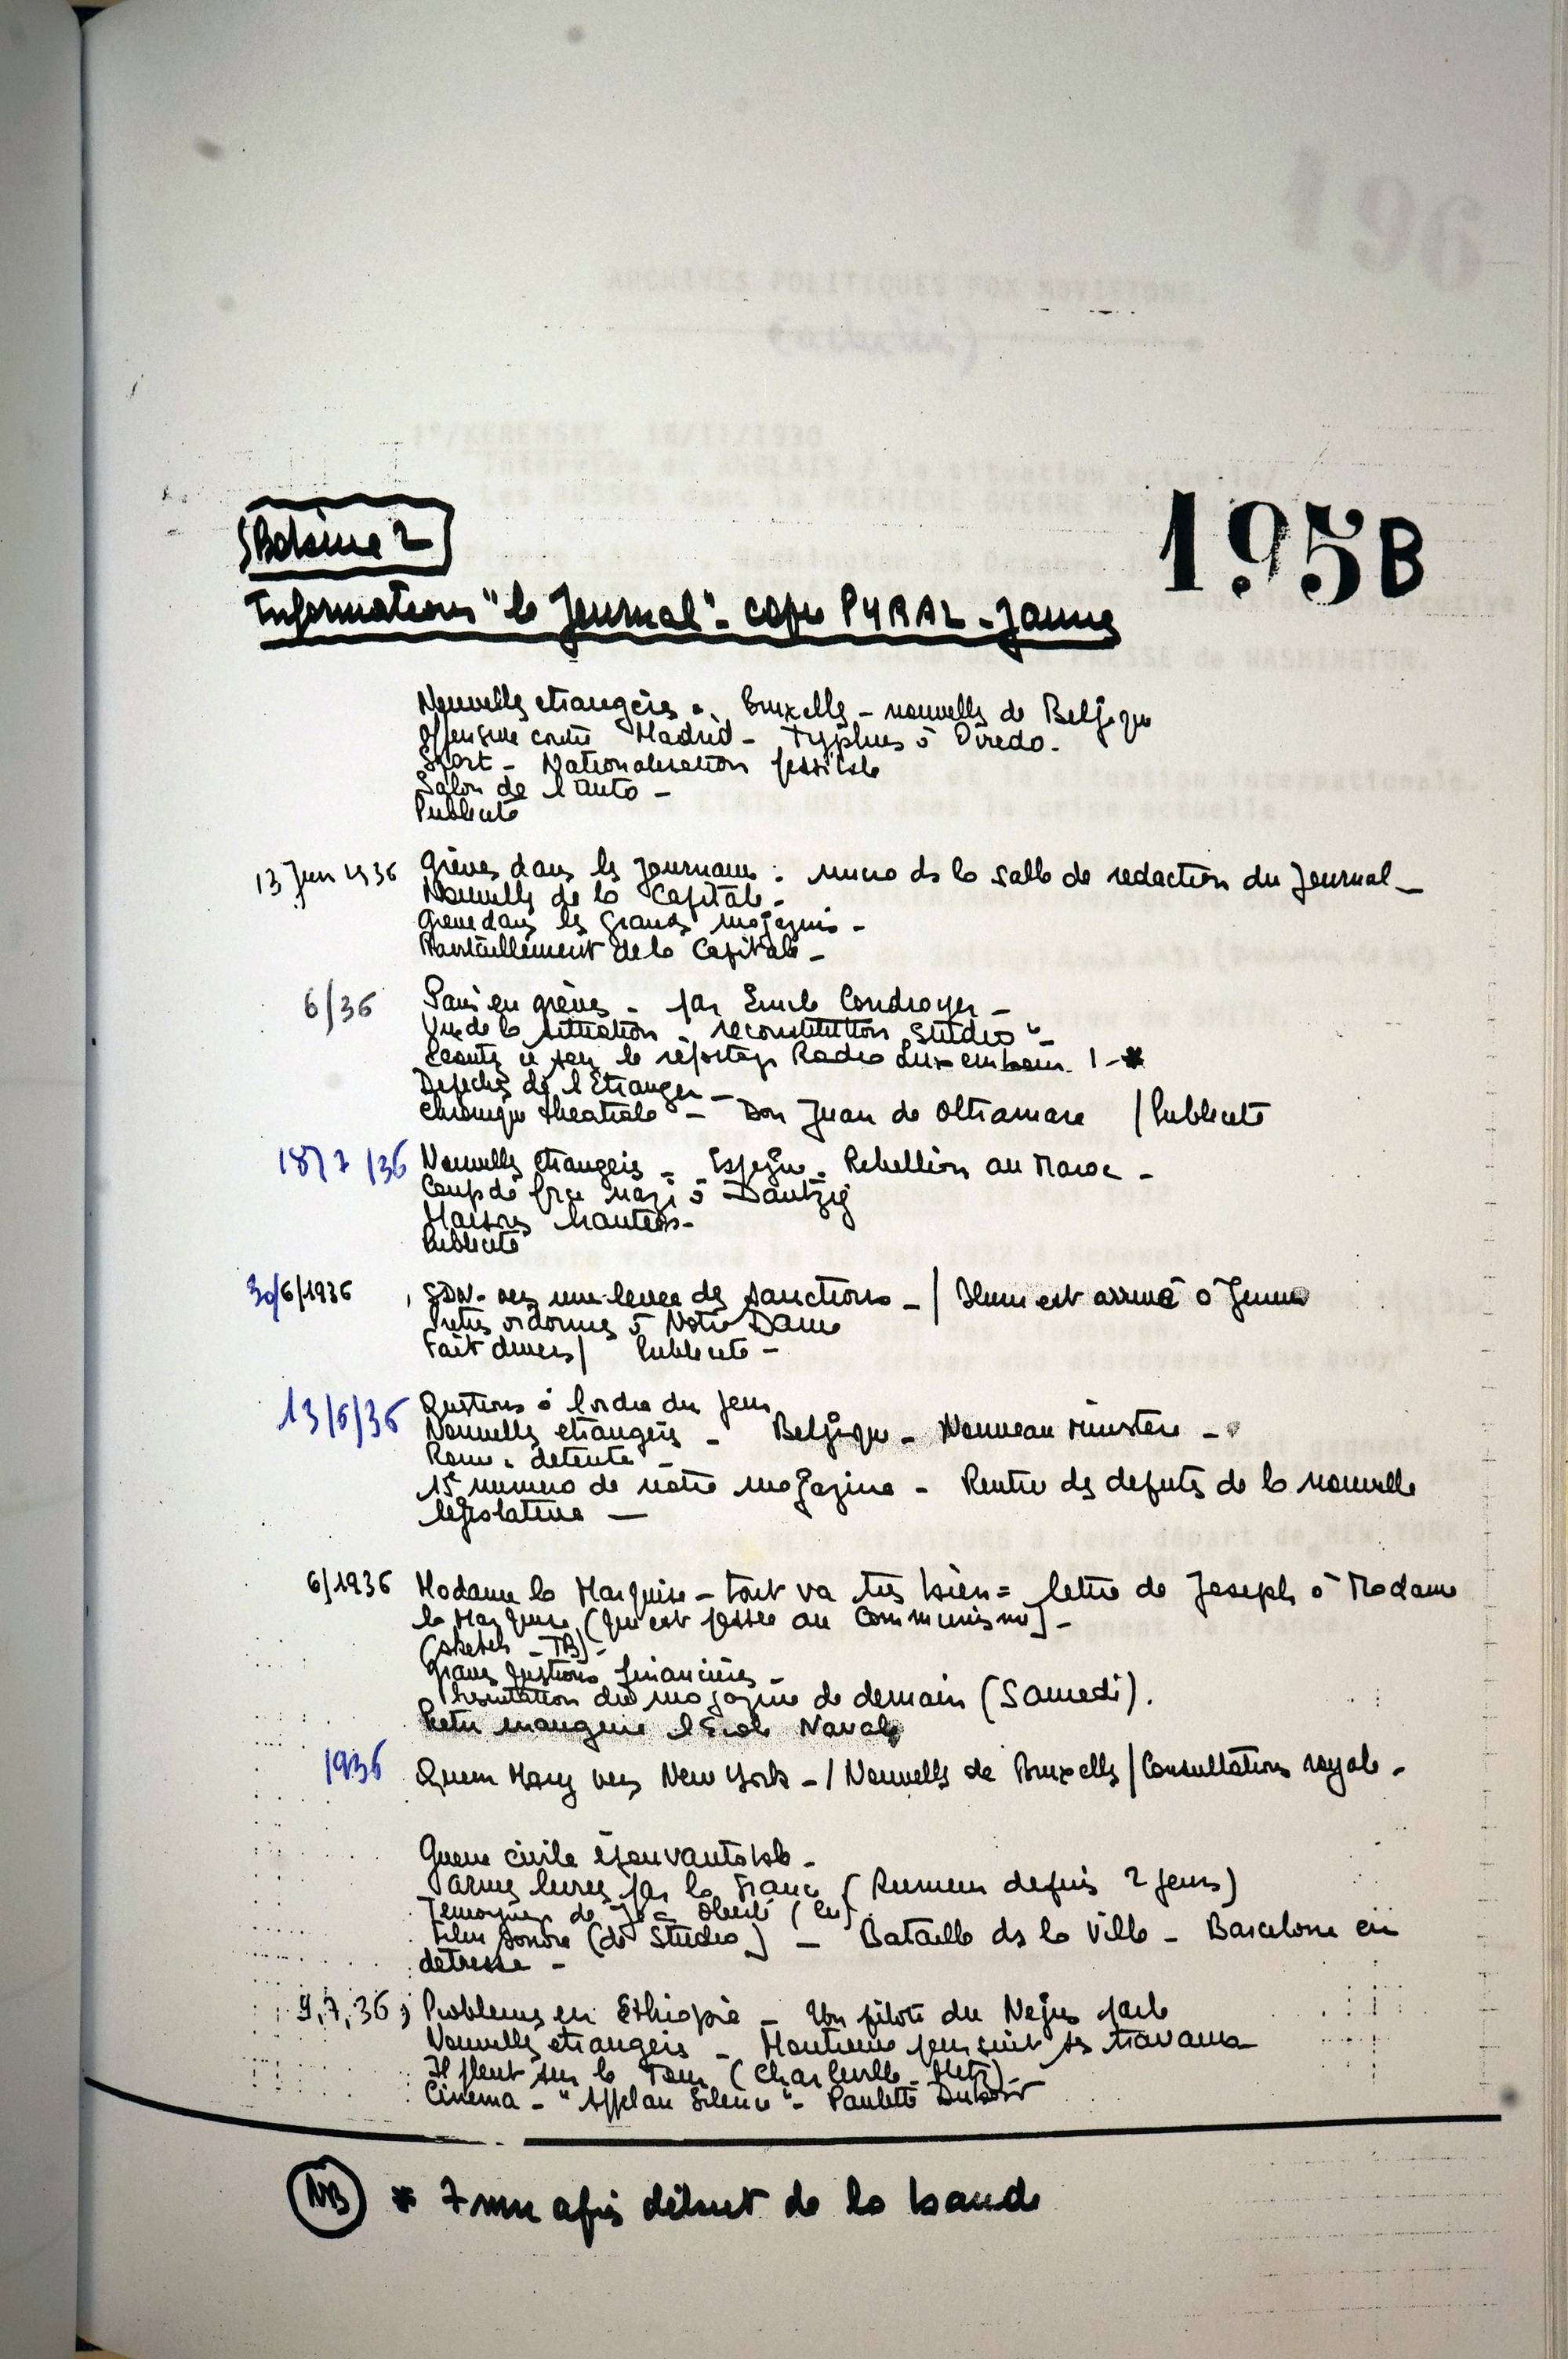 195B
Bobine 2
Informations "le Journal" - copie PYRAL - Jaune
Nouvelles etrangères . Bruxelles - nouvelles de Belgique
Offensive contre Madrid - Typhus à Oviedo -
Sport - Nationalisation possible
Salon de l'auto -
Publicité
13 Juin 1936 Grèves dans les journaux : micro ds la salle de redaction du Journal -
Nouvelles de la Capitale -
Greve dans les grands magasins -
Ravitaillement de la Capitale -
6/36 Paris en grèves - par Emile Condroyer -
Vue de la situation - reconstitution studio " -
Ecoutez ce soir le reportage Radio Luxembourg ! - *
Depeches de l'Etranger -
Chronique theatrale - Don Juan de Oltramare / Publicité
18/7/36 Nouvelles etrangères - Espagne - Rebellion au Maroc -
Coup de force nazi à Dantzig
Maisons hantées -
Publicité
30/6/1936 SDN - vers une levee des sanctions - / Blum est arrivé à Geneve
Pretres ordonnes à Notre Dame
Fait divers / Publicité -
13/6/36 Questions à l'ordre du jour
Nouvelles etrangères - Belgique - Nouveau Ministere -
Rome . detente -
15 numero de notre magazine - Rentree des deputes de la nouvelle
legislature -
6/1936 Madame la Marquise - tout va tres bien = lettre de Joseph à Madame
la Marquise (qui est passée au Communisme) -
(sketch - TB) -
Graves questions financières -
Presentation du magazine de demain (Samedi).
inaugure l'Ecole Navale
1936 Queen Mary vers New York - / Nouvelles de Bruxelles / Consultations royale -
Guerre civile épouvantable -
armes livrées par la France (Rumeur depuis 2 jours)
Temoignage de Oberlé (lu)
Film sonore (de Studio) - Bataille ds la Ville - Barcelone en
detresse -
9,7,36, Problemes en Ethiopie - Un pilote du Negus parle
Nouvelles etrangères - Montreux poursuit ses travaux
Il pleut sur le Tour (Charleville - Metz) -
Cinema - "Appel au Silence" - Paulette Dubost
NB * 7mn après début de la bande